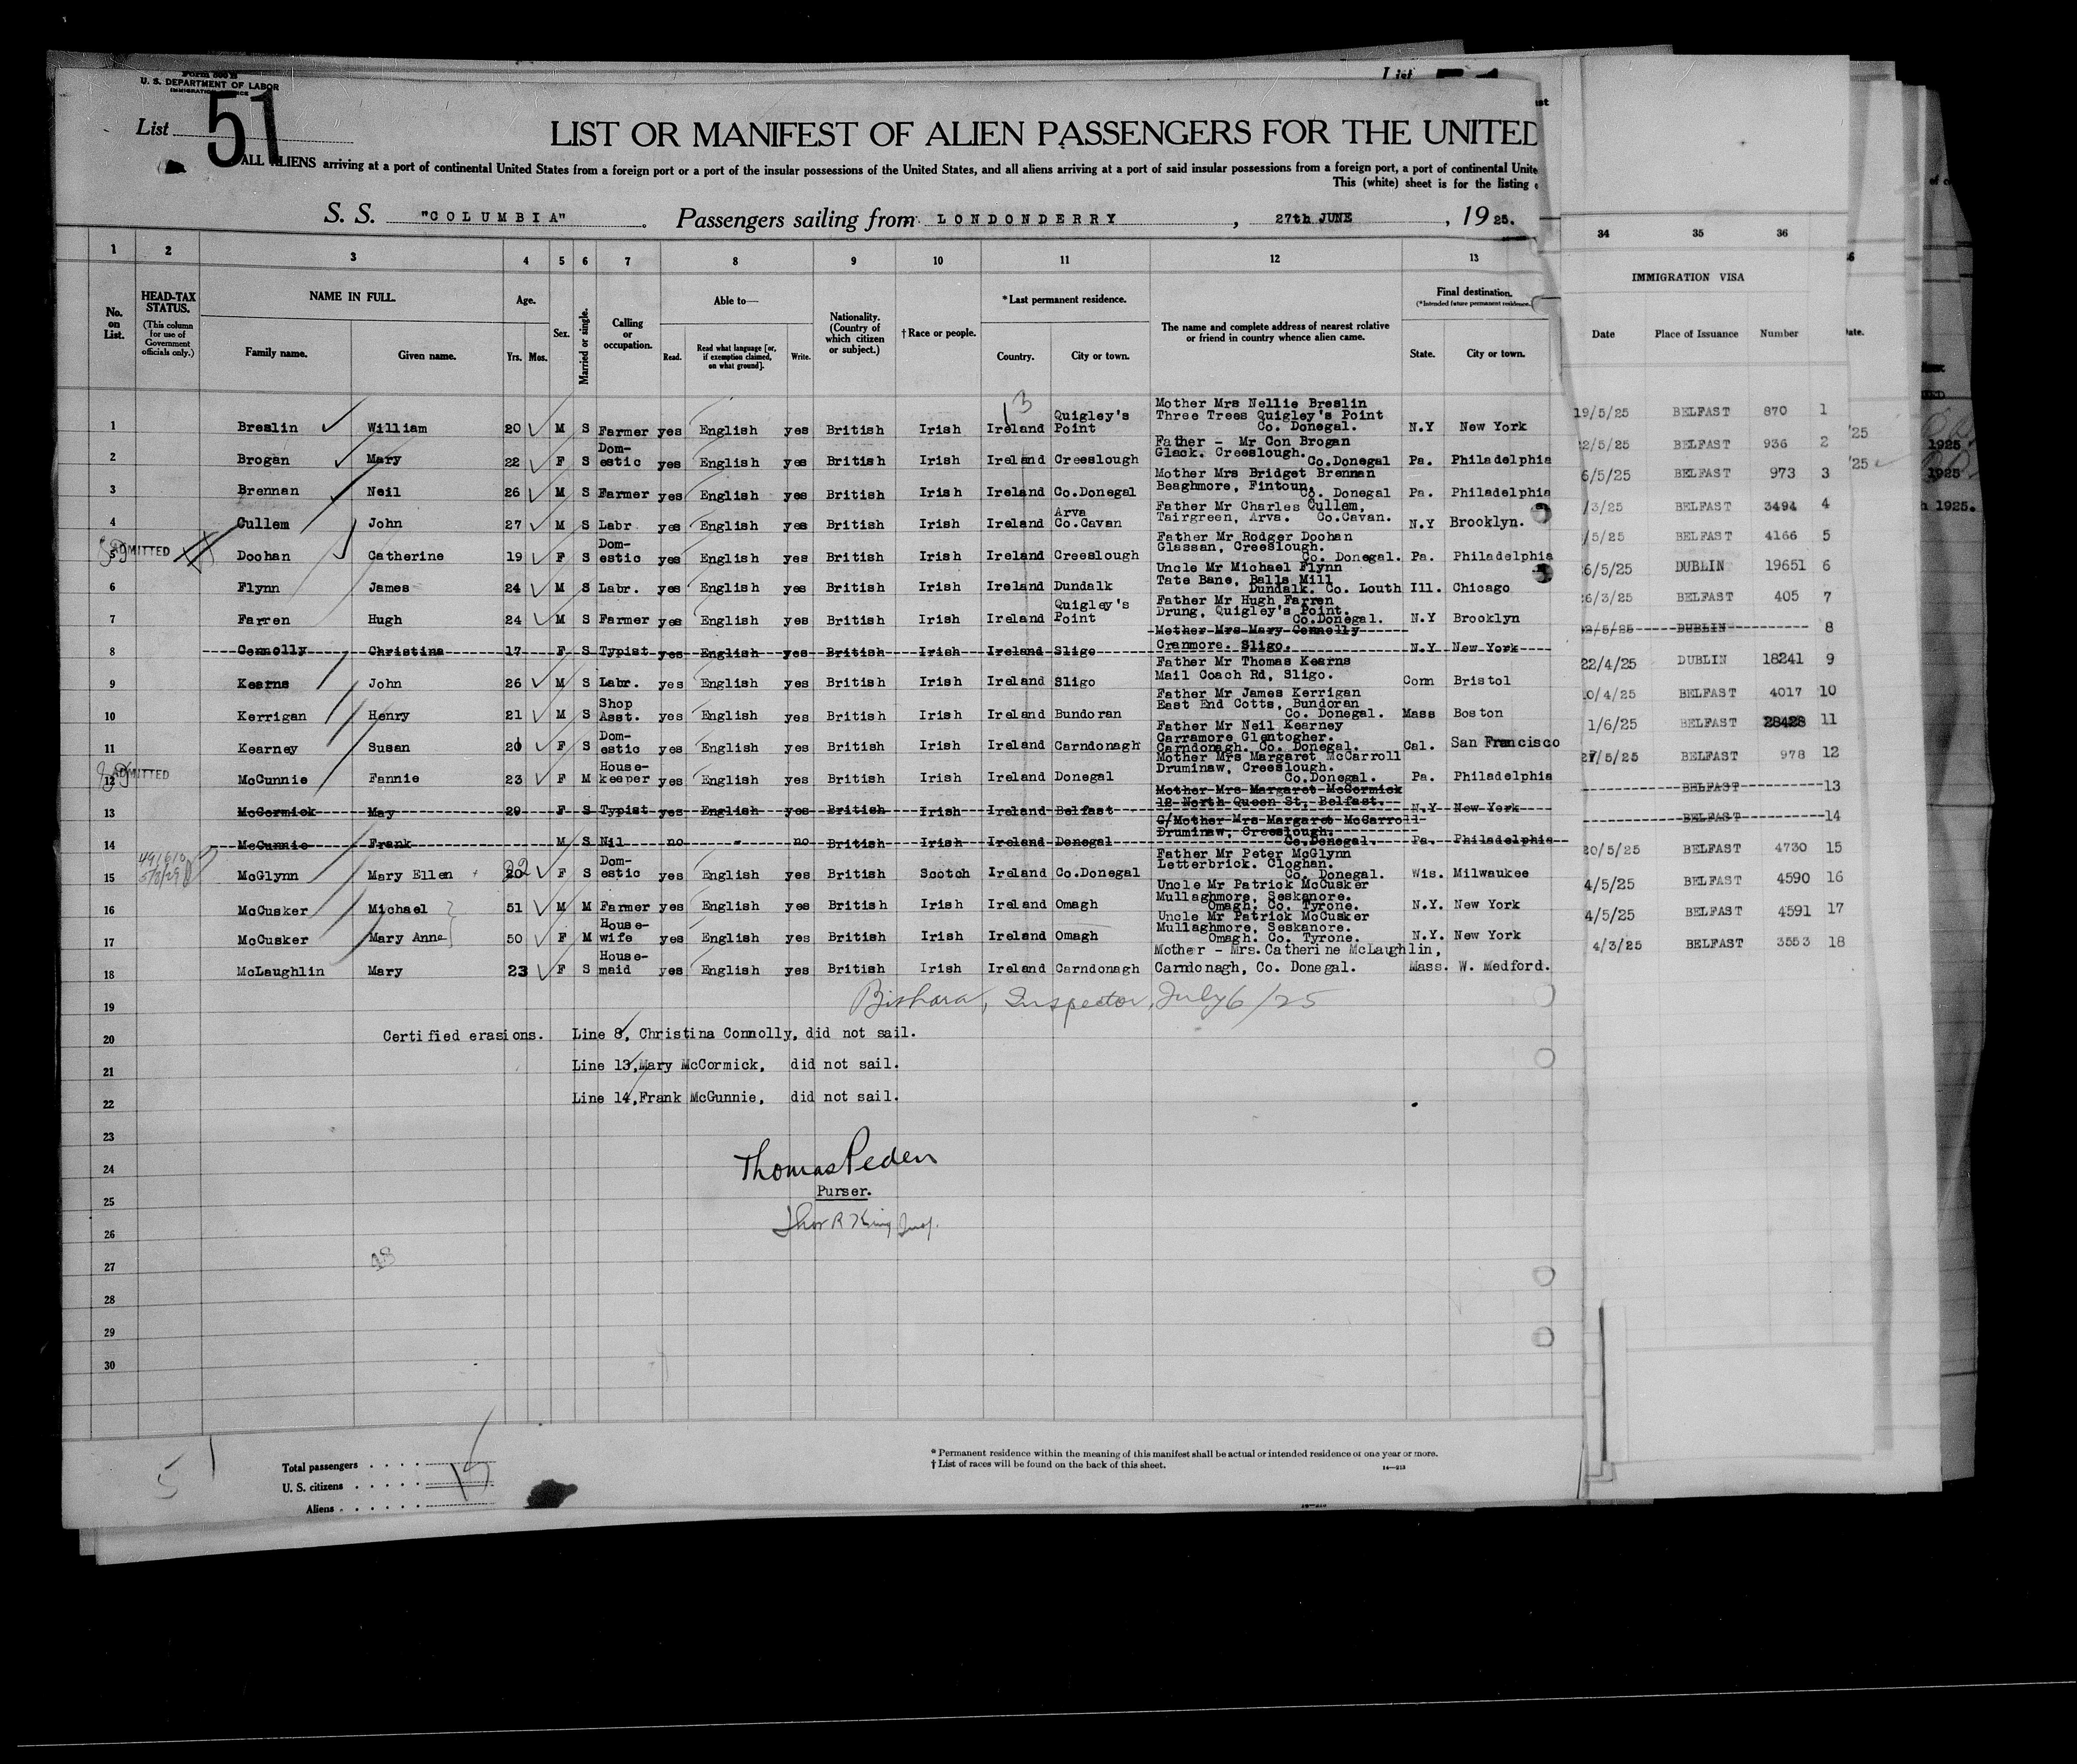 Form 500 B
U. S. DEPARTMENT OF LABOR
IMMIGRATION SERVICE
List 51
LIST OR MANIFEST OF ALIEN PASSENGERS FOR THE UNITED
ALL ALIENS arriving at a port of continental United States from a foreign port or a port of the insular possessions of the United States, and all aliens arriving at a port of said insular possessions from a foreign port, a port of continental Unite
This (white) sheet is for the listing
S. S. "COLUMBIA" Passengers sailing from LONDONDERRY, 27th JUNE, 1925.
1 2 3 4 5 6 7 8 9 10 11 12 13 34 35 36
No. on List. HEAD-TAX STATUS. (This column for use of Government officials only.) NAME IN FULL. Family name. Given name. Age. Yrs. Mos. Sex. Married or single. Calling or occupation. Able to— Read. Read what language [or, if exemption claimed, on what ground]. Write. Nationality. (Country of which citizen or subject.) †Race or people. *Last permanent residence. Country. City or town. The name and complete address of nearest relative or friend in country whence alien came. Final destination. (*Intended future permanent residence.) State. City or town. IMMIGRATION VISA Date Place of Issuance Number
13
1 Breslin William 20 M S Farmer yes English yes British Irish Ireland Quigley's Point Mother Mrs Nellie Breslin Three Trees Quigley's Point Co. Donegal. N.Y New York 19/5/25 BELFAST 870 1
2 Brogan Mary 22 F S Dom-estic yes English yes British Irish Ireland Creeslough Father - Mr Con Brogan Glack. Creeslough. Co.Donegal Pa. Philadelphia 2/5/25 BELFAST 936 2
3 Brennan Neil 26 M S Farmer yes English yes British Irish Ireland Co.Donegal Mother Mrs Bridget Brennan Beaghmore, Fintoun, Co. Donegal Pa. Philadelphia 6/5/25 BELFAST 973 3
4 Cullem John 27 M S Labr yes English yes British Irish Ireland Arva Co.Cavan Father Mr Charles Cullem, Tairgreen, Arva. Co.Cavan. N.Y Brooklyn. /3/25 BELFAST 3494 4
ADMITTED
5 Doohan Catherine 19 F S Dom-estic yes English yes British Irish Ireland Creeslough Father Mr Rodger Doohan Glassan, Creeslough. Co. Donegal. Pa. Philadelphia /5/25 BELFAST 4166 5
6 Flynn James 24 M S Labr. yes English yes British Irish Ireland Dundalk Uncle Mr Michael Flynn Tate Bane, Balls Mill Dundalk. Co. Louth Ill. Chicago 6/5/25 DUBLIN 19651 6
7 Farren Hugh 24 M S Farmer yes English yes British Irish Ireland Quigley's Point Father Mr Hugh Farren Drung, Quigley's Point. Co.Donegal. N.Y Brooklyn 6/3/25 BELFAST 405 7
8 Connolly Christina 17 F S Typist yes English yes British Irish Ireland Sligo Mother Mrs Mary Connelly Cranmore. Sligo. N.Y New York 2/5/25 DUBLIN 8
9 Kearns John 26 M S Labr. yes English yes British Irish Ireland Sligo Father Mr Thomas Kearns Mail Coach Rd, Sligo. Conn Bristol 22/4/25 DUBLIN 18241 9
10 Kerrigan Henry 21 M S Shop Asst. yes English yes British Irish Ireland Bundoran Father Mr James Kerrigan East End Cotts, Bundoran Co. Donegal. Mass Boston 0/4/25 BELFAST 4017 10
11 Kearney Susan 20 F S Dom-estic yes English yes British Irish Ireland Carndonagh Father Mr Neil Kearney Carramore Glentogher. Carndonagh. Co. Donegal. Cal. San Francisco 1/6/25 BELFAST 28428 11
ADMITTED
12 McCunnie Fannie 23 F M House-keeper yes English yes British Irish Ireland Donegal Mother Mrs Margaret McCarroll Druminaw, Creeslough. Co.Donegal. Pa. Philadelphia 27/5/25 BELFAST 978 12
13 McCormick May 29 F S Typist yes English yes British Irish Ireland Belfast Mother Mrs Margaret McCormick 12 North Queen St, Belfast. N.Y New York BELFAST 13
14 McCunnie Frank M S Nil no - no British Irish Ireland Donegal G/Mother Mrs Margaret McCarroll Druminaw, Creeslough. Co.Donegal. Pa. Philadelphia BELFAST 14
15 McGlynn Mary Ellen 22 F S Dom-estic yes English yes British Scotch Ireland Co.Donegal Father Mr Peter McGlynn Letterbrick. Cloghan. Co. Donegal. Wis. Milwaukee 20/5/25 BELFAST 4730 15
16 McCusker Michael 51 M M Farmer yes English yes British Irish Ireland Omagh Uncle Mr Patrick McCusker Mullaghmore, Seskanore. Omagh. Co. Tyrone. N.Y. New York 4/5/25 BELFAST 4590 16
17 McCusker Mary Anne 50 F M House-wife yes English yes British Irish Ireland Omagh Uncle Mr Patrick McCusker Mullaghmore, Seskanore. Omagh. Co. Tyrone. N.Y. New York 4/5/25 BELFAST 4591 17
18 McLaughlin Mary 23 F S House-maid yes English yes British Irish Ireland Carndonagh Mother - Mrs. Catherine McLaughlin, Carndonagh, Co. Donegal. Mass. W. Medford. 4/3/25 BELFAST 3553 18
19 Bishara, Inspector, July 6/25
20 Certified erasions. Line 8, Christina Connolly, did not sail.
21 Line 13, Mary McCormick, did not sail.
22 Line 14, Frank McGunnie, did not sail.
23
24 Thomas Peden
25 Purser.
26
27
28
29
30
Total passengers
U. S. citizens
Aliens
* Permanent residence within the meaning of this manifest shall be actual or intended residence of one year or more.
† List of races will be found on the back of this sheet.